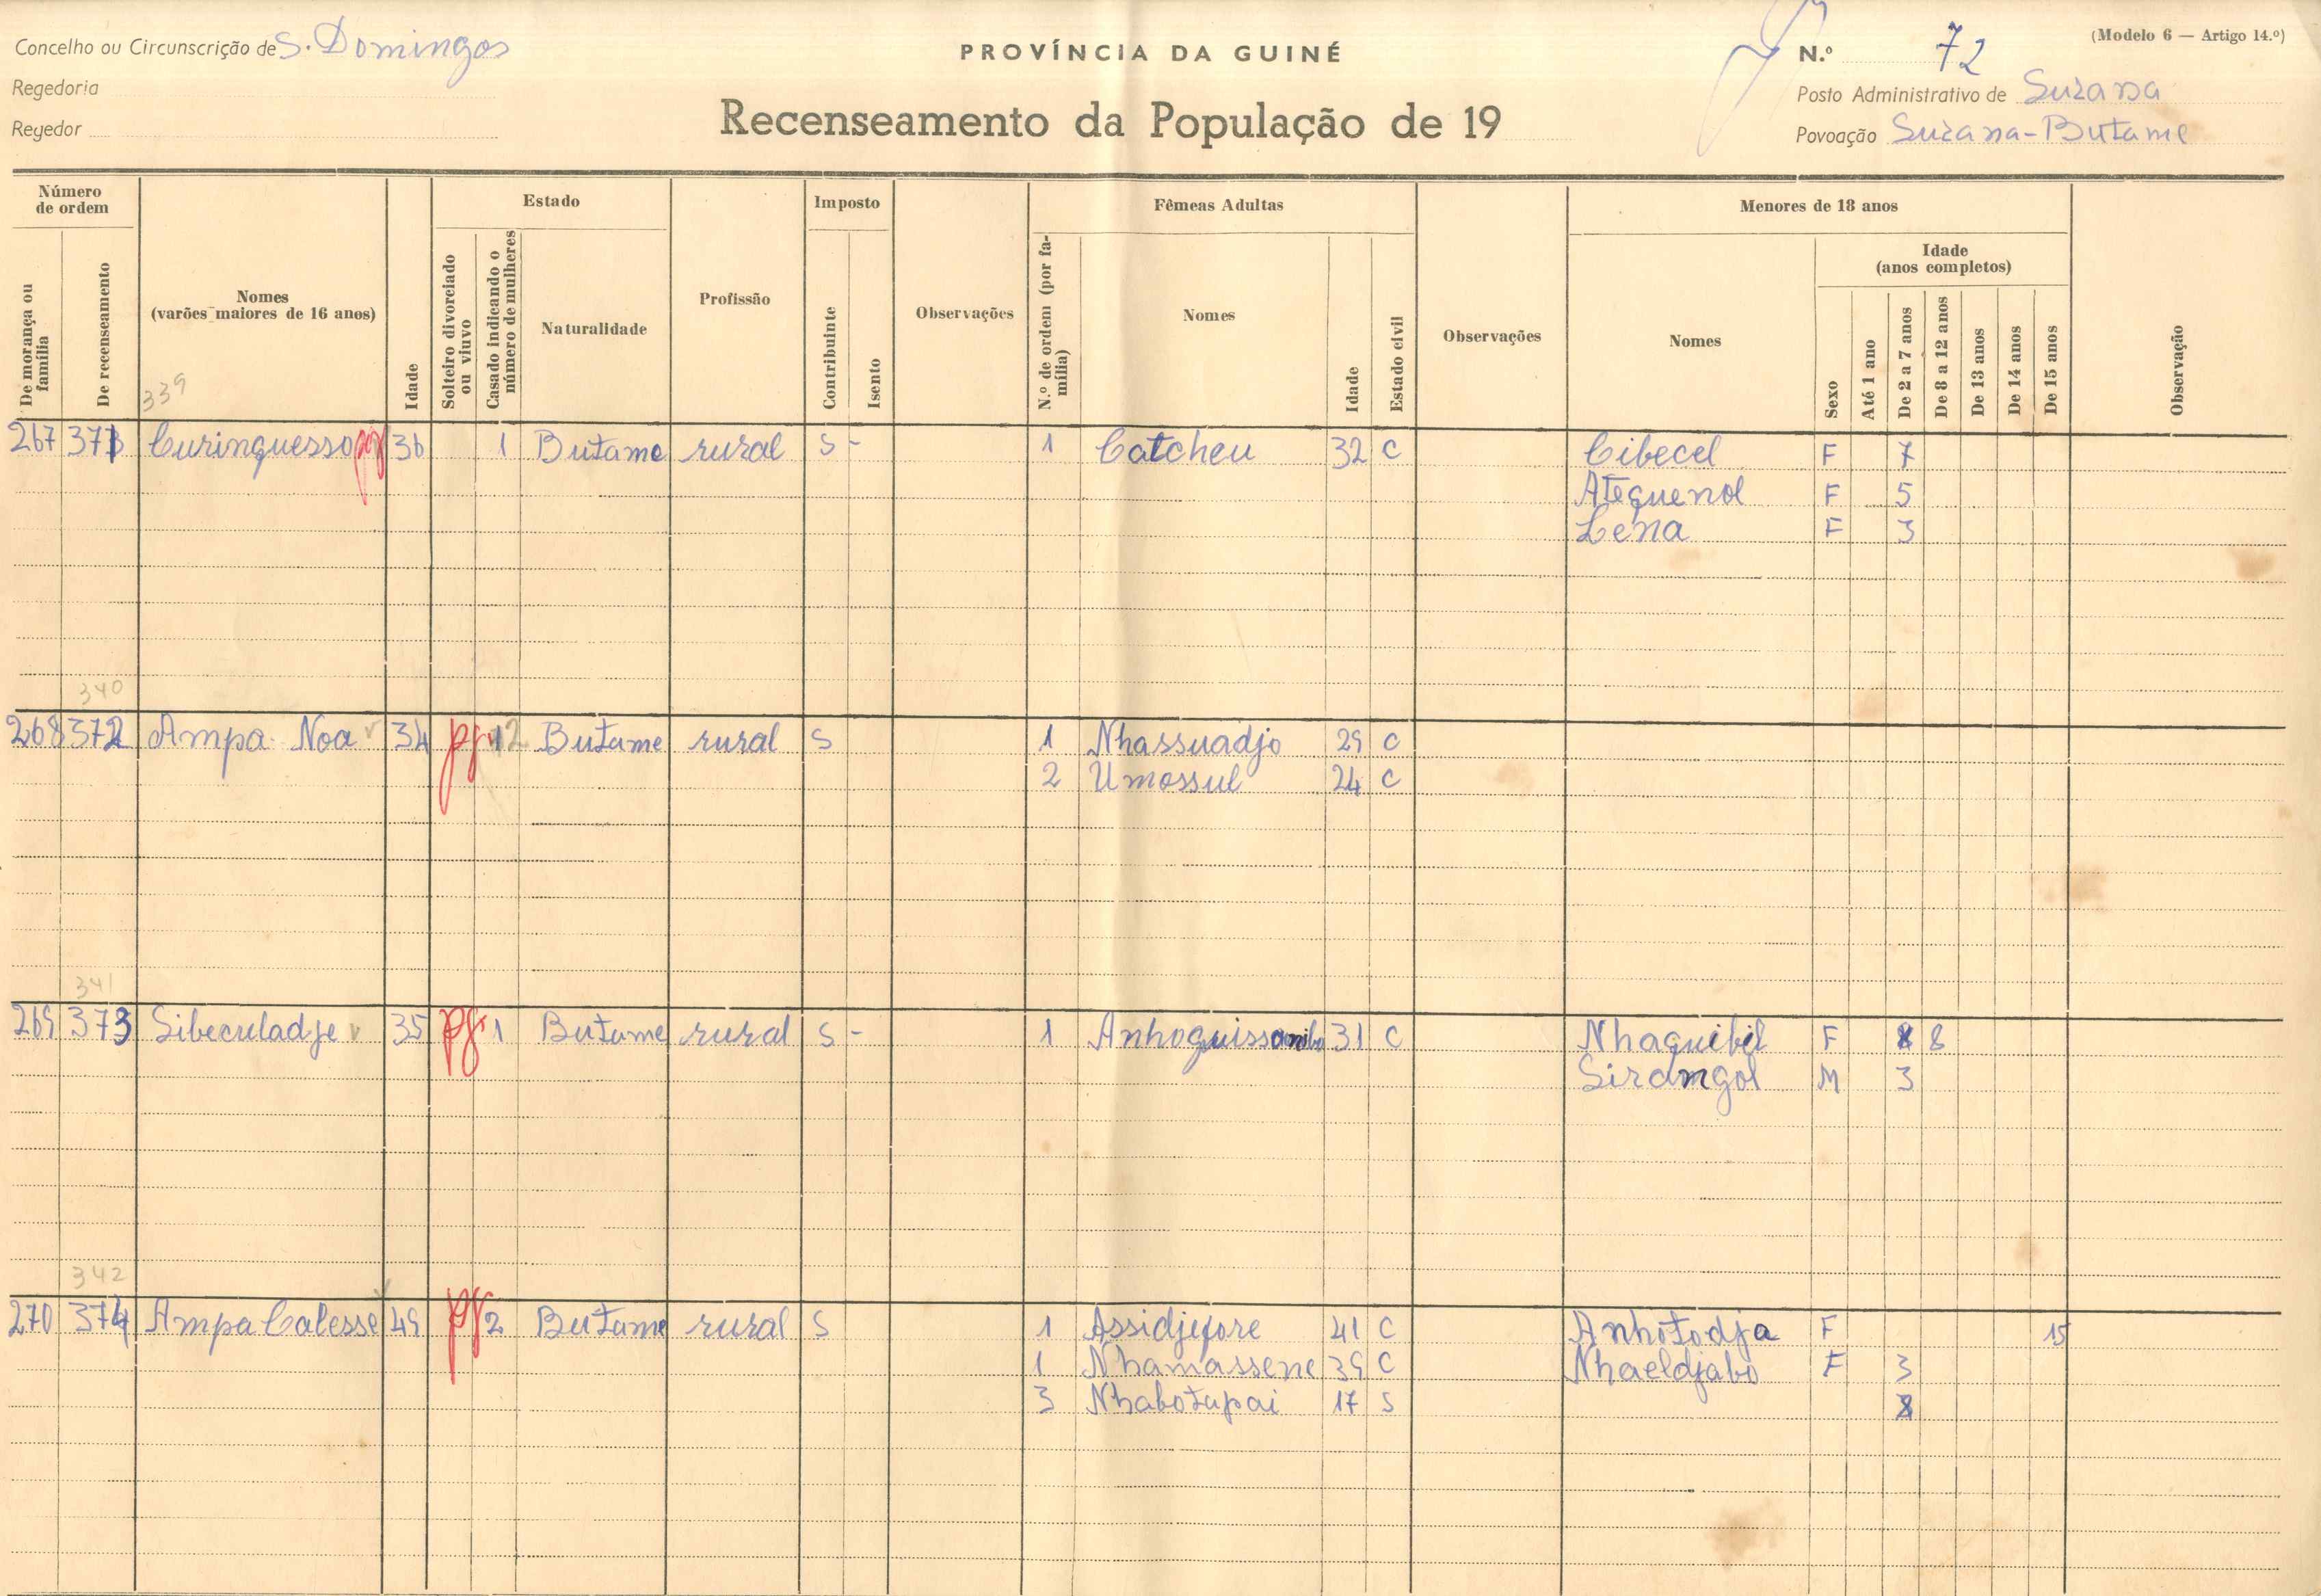 Concelho ou Circunscrição de S. Domingos
PROVÍNCIA DA GUINÉ
N.º 72
(Modelo 6 — Artigo 14.º)
Regedoria
Posto Administrativo de Suzana
Regedor
Recenseamento da População de 19
Povoação Suzana-Butame
Número de ordem
De morança ou família
De recenseamento
Nomes
(varões maiores de 16 anos)
Idade
Estado
Solteiro divorciado ou viuvo
Casado indicando o número de mulheres
Naturalidade
Profissão
Imposto
Contribuinte
Isento
Observações
Fêmeas Adultas
N.º de ordem (por família)
Nomes
Idade
Estado civil
Observações
Menores de 18 anos
Nomes
Sexo
Idade
(anos completos)
Até 1 ano
De 2 a 7 anos
De 8 a 12 anos
De 13 anos
De 14 anos
De 15 anos
Observação
339
267 371 Curinquesso pg 36 1 Butame rural S - 1 Catcheu 32 C Cibecel F 7
Atequenol F 5
Lena F 3
340
268 372 Ampa Noa 34 pg 12 Butame rural S 1 Nhassuadjo 29 C
2 Umossul 24 C
341
269 373 Sibeculadje 35 pg 1 Butame rural S - 1 31 C Nhaquibil F 8
Sirangol M 3
342
270 374 Ampa Calesse 49 pg 2 Butame rural S 1 Assidjefore 41 C Anhotodja F 15
1 Nhamassene 39 C Nhaeldjabo F 3
3 Nhabotupai 17 S